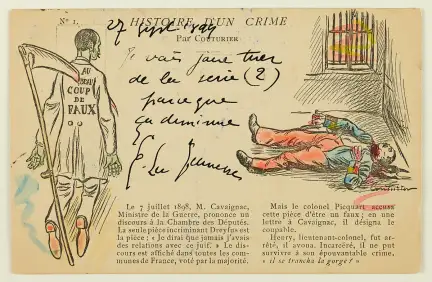 Nº 1.
HISTOIRE D'UN CRIME
Par COUTURIER
27 sept. 1899
Je vais faire tirer
de la serie (2)
parce que
ça diminue
AU
BEAU
COUP
DE
FAUX
Couturier
Le 7 juillet 1898, M. Cavaignac,
Ministre de la Guerre, prononce un
discours à la Chambre des Députés.
La seule pièce incriminant Dreyfus est
la pièce : « Je dirai que jamais j'avais
des relations avec ce juif. » Le dis-
cours est affiché dans toutes les com-
munes de France, voté par la majorité.
Mais le colonel Picquart accuse
cette pièce d'être un faux ; en une
lettre à Cavaignac, il désigne le
coupable.
Henry, lieutenant-colonel, fut ar-
rêté, il avoua. Incarcéré, il ne put
survivre à son épouvantable crime.
« il se trancha la gorge ? »